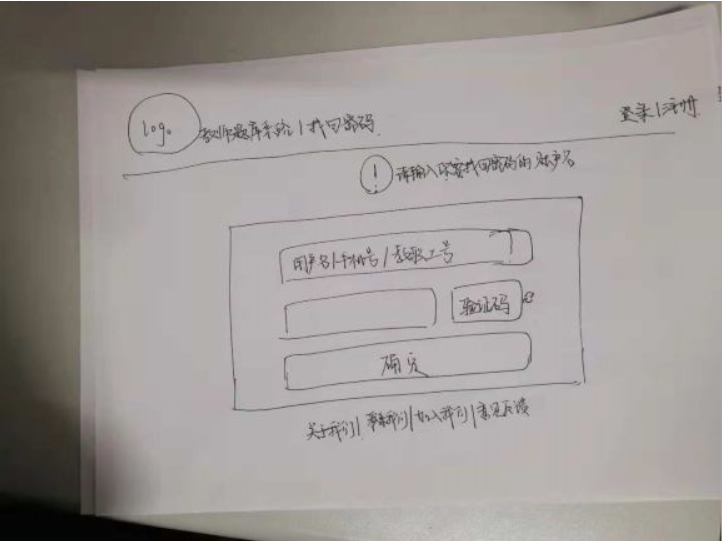 logo 教师题库系统 | 找回密码 登录 | 注册
! 请输入你要找回密码的账户名
用户名 | 手机号 | 教职工号
验证码
确定
关于我们 | 联系我们 | 加入我们 | 意见反馈